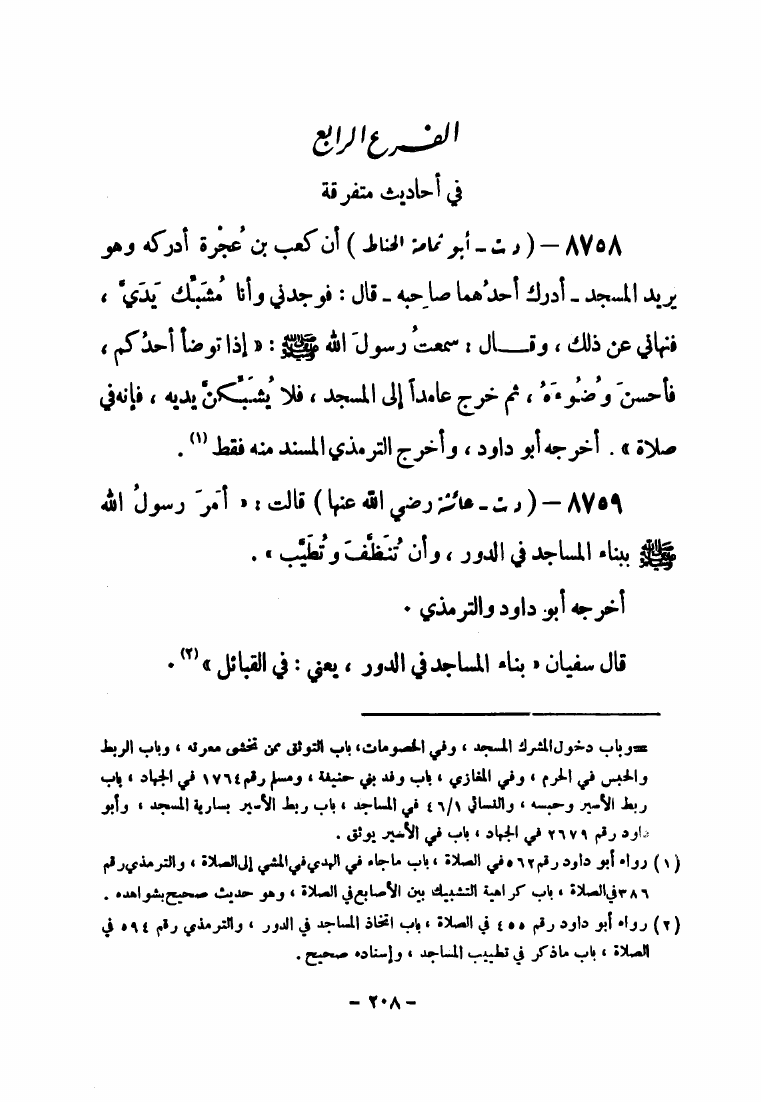 الفرع الرابع
في أحاديث متفرقة
٨٧٥٨ – ( د ت - أبو ثمامة الحناط ) أن كعب بن عُجْرة أدركه وهو
يريد المسجد - أدرك أحدُهما صاحِبه - قال : فوجدني وأنا مُشَبِّك يَدَيَّ ،
فنهاني عن ذلك ، وقــال : سمعتُ رسولَ الله ﷺ : « إذا توضأ أحدُكم ،
فأحسنَ وُضُوءَهُ ، ثم خرج عامداً إلى المسجد ، فلا يُشَبِّكنَّ يديه ، فإنه في
صلاة » . أخرجه أبو داود ، وأخرج الترمذي المسند منه فقط (١) .
٨٧٥٩ – ( د ت - عائشة رضي الله عنها ) قالت : « أمَرَ رسولُ الله
ﷺ ببناء المساجد في الدور ، وأن تُنَظَّفَ وتُطَيَّب » .
أخرجه أبو داود والترمذي .
قال سفيان « بناء المساجد في الدور ، يعني : في القبائل » (٢) .
= وباب دخول المشرك المسجد ، وفي الخصومات، باب التوثق ممن تخشى معرته ، وباب الربط
والحبس في الحرم ، وفي المغازي ، باب وفد بني حنيفة ، ومسلم رقم ١٧٦٤ في الجهاد ، باب
ربط الأسير وحبسه ، والنسائي ٤٦/١ في المساجد ، باب ربط الأسير بسارية المسجد ، وأبو
داود رقم ٢٦٧٩ في الجهاد ، باب في الأسير يوثق .
(١) رواه أبو داود رقم ٥٦٢ في الصلاة ، باب ماجاء في الهدي في المشي إلى الصلاة ، والترمذي رقم
٣٨٦ في الصلاة ، باب كراهية التشبيك بين الأصابع في الصلاة ، وهو حديث صحيح بشواهده .
(٢) رواه أبو داود رقم ٤٥٥ في الصلاة ، باب اتخاذ المساجد في الدور ، والترمذي رقم ٥٩٤ في
الصلاة ، باب ماذكر في تطييب المساجد ، وإسناده صحيح .
– ٢٠٨ –